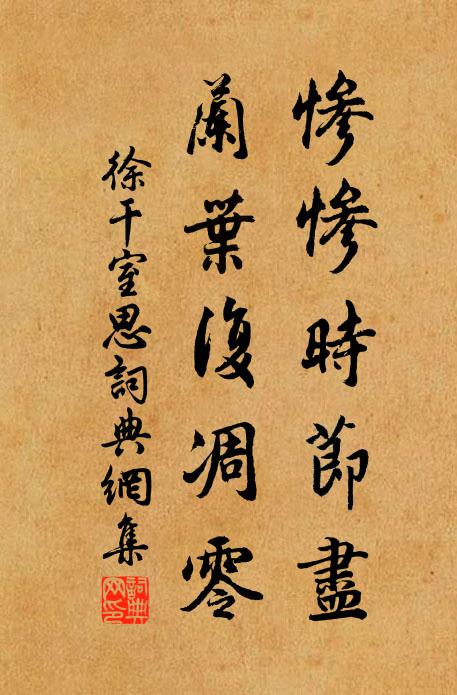 慘慘時節盡
蘭葉復凋零
徐干室思詞典網集
詞典网印